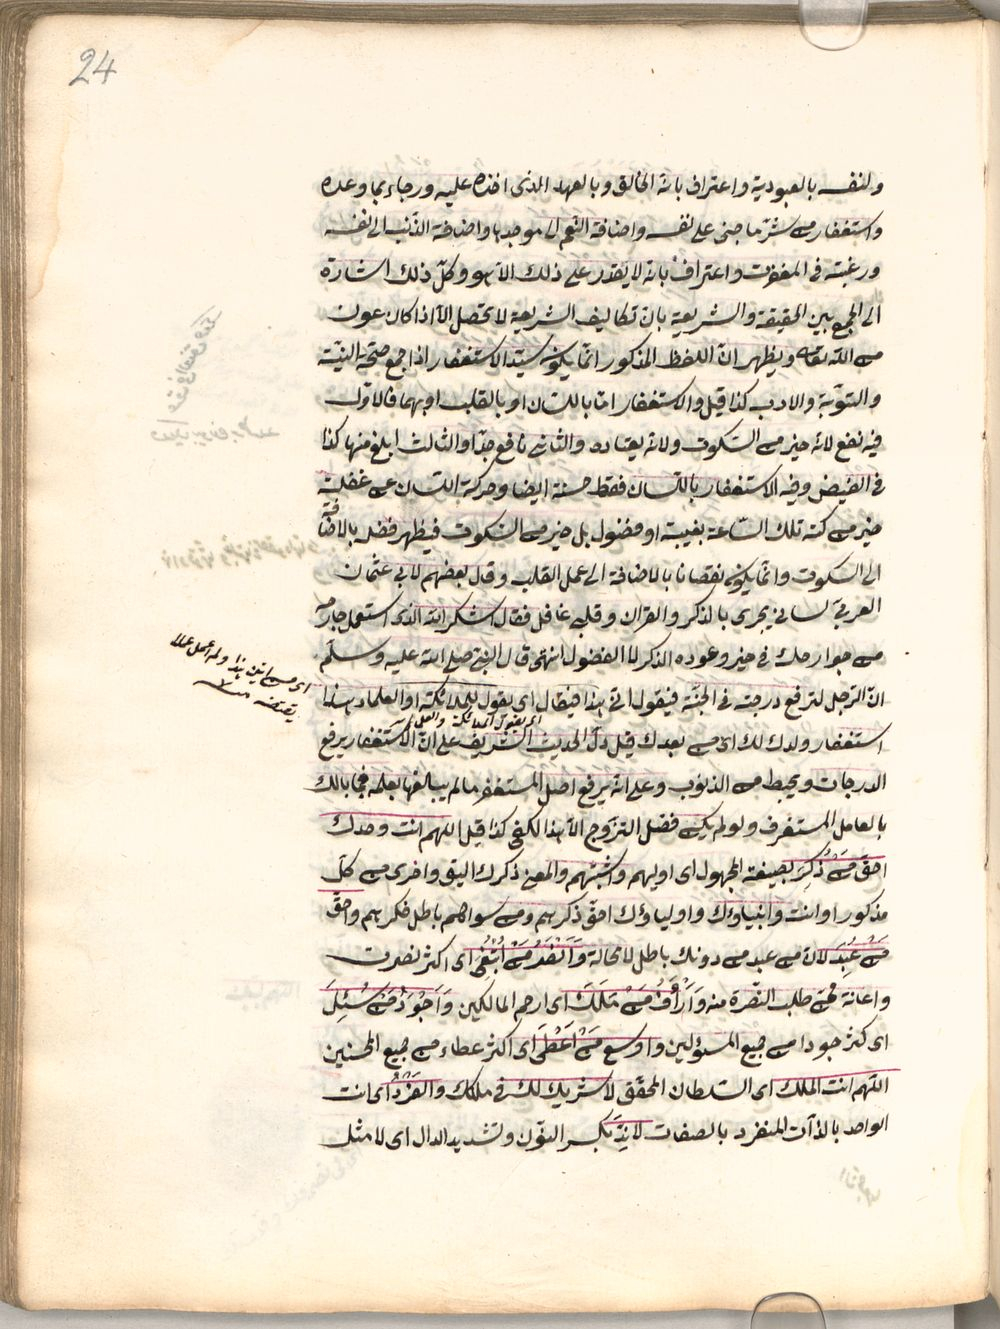 24
ولنفسه بالعبودية واعتراف بانه الخالق وبالعهد الذى اخذه عليه ورجاء بما وعده
واستغفار من شر ما جنى على نفسه واضافة النعم الى موجدها واضافة الذنب الى نفسه
ورغبته فى المغفرت واعتراف بانه لا يقدر على ذلك الا هو وكل ذلك اشارة
الى الجمع بين الحقيقة والشريعة بان تكاليف الشريعة لا تحصل الا اذا كان عون
من الله تعالى ويظهر ان اللفظ المذكور انما يكون سيد الاستغفار اذا جمع صحة النية
والتوبة والادب كذا قيل والاستغفار اما باللسان او بالقلب او بهما فالاول
فيه نفع لانه خير من السكوت ولانه يعتاده والثانى نافع جدا والثالث ابلغ منها كذا
فى الفيض وفيه الاستغفار باللسان فقط حسنة ايضا وحركة اللسان عن غفلة
خير من كته تلك الساعة بغيبة او فضول بل خير من السكوت فيظهر فضله بالاضافة
الى السكوت وانما يكون نقصانا بالاضافة الى عمل القلب وقال بعضهم لابى عثمان
العربى لسانى يجرى بالذكر والقران وقلبه غافل فقال اشكر الله الذى استعمل جارحة
من جوارحك فى خير وعوده الذكر لا الفضول انتهى قال النبى صلى الله عليه وسلم
ان الرجل لترفع درجته فى الجنة فيقول انى هذا فيقال اى يقول الملائكة او العلماء هذا
اى يقول الملائكة والعلماء
استغفار ولدك لك اى من بعدك قيل دل الحديث الشريف على ان الاستغفار يرفع
الدرجات ويحبط من الذنوب وعلى انه يرفع اصل المستغفر ما لم يبلغها بعلمه فما بالك
بالعامل المستغفر ولو لم يكن فضل التزوج الا هذا لكفى كذا قيل اللهم انت وحدك
احق من ذكر بصيغة المجهول اى اوليهم واشبتهم والمعنى ذكرك اليق واخرى من كل
مذكور او انت وانبياؤك واولياؤك احق ذكرهم ومن سواهم باطل فكرهم واحق
من عبد لان من عبد من دونك باطل لا محالة وانصر من ابتغى اى اكثر نصرت
واعانة لمن طلب النصرة منه وارأف من ملك اى ارحم المالكين واجود من سئل
اى كثر جودا من جميع المسؤلين واوسع من اعطى اى اكثر عطاء من جميع المحسنين
اللهم انت الملك اى السلطان المحقق لا شريك لك فى ملكك والفرد اى انت
الواحد بالذات المنفرد بالصفات لا ند بكسر النون وتشديد الدال اى لا مثل
اى من اين هذا ولم اعمل عملا